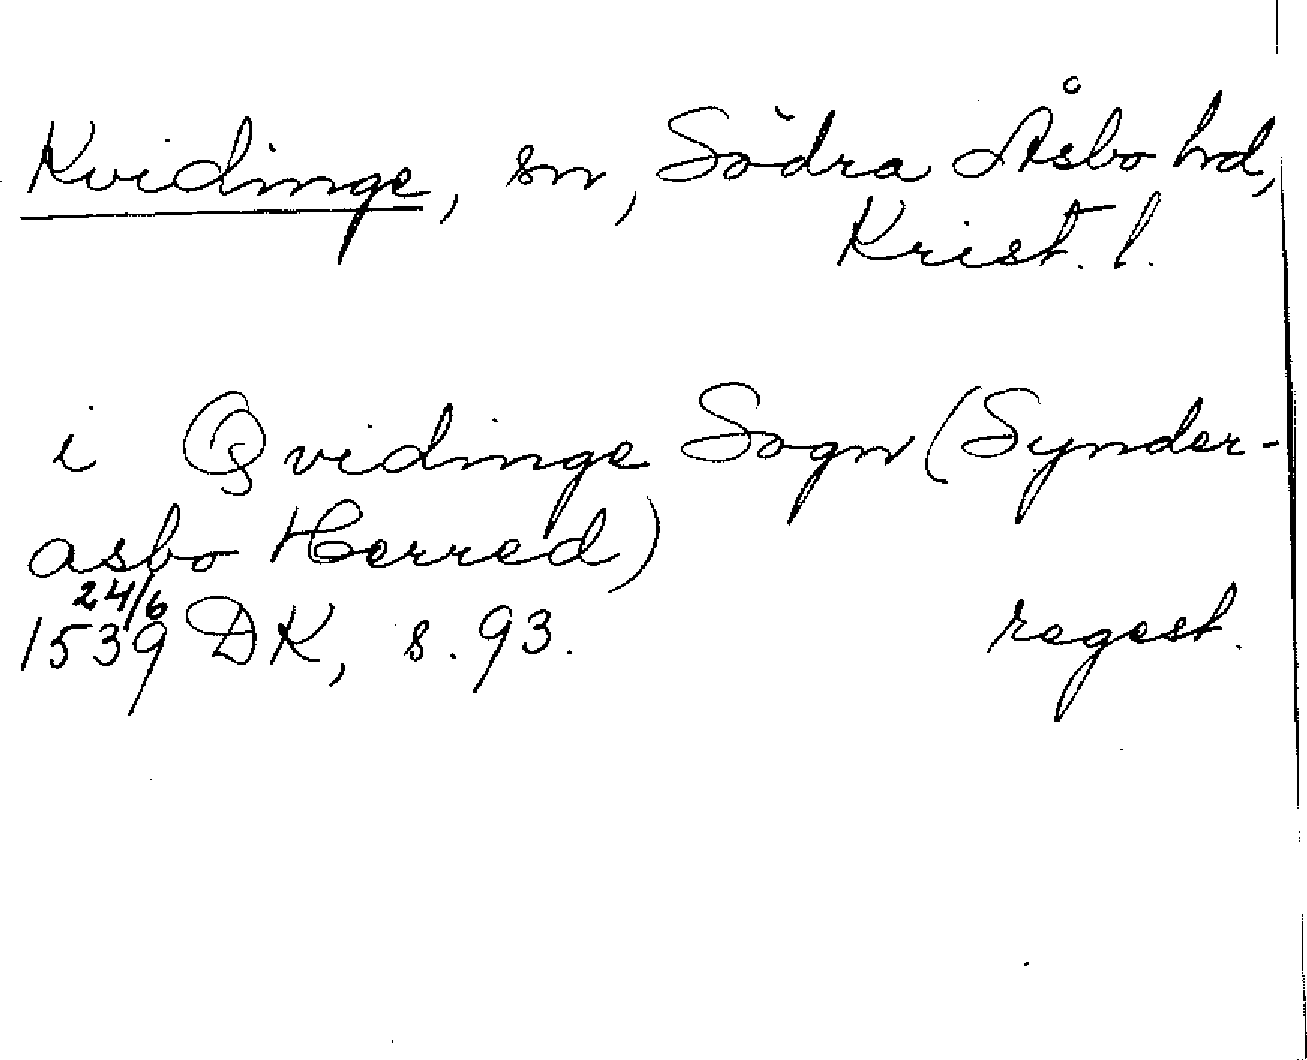 Kvidinge, sn, Södra Åsbo hd,
Krist. l.
i Qvidinge Sogn (Synder-
asbo Herred)
24/6
1539 DK, s. 93. regest.